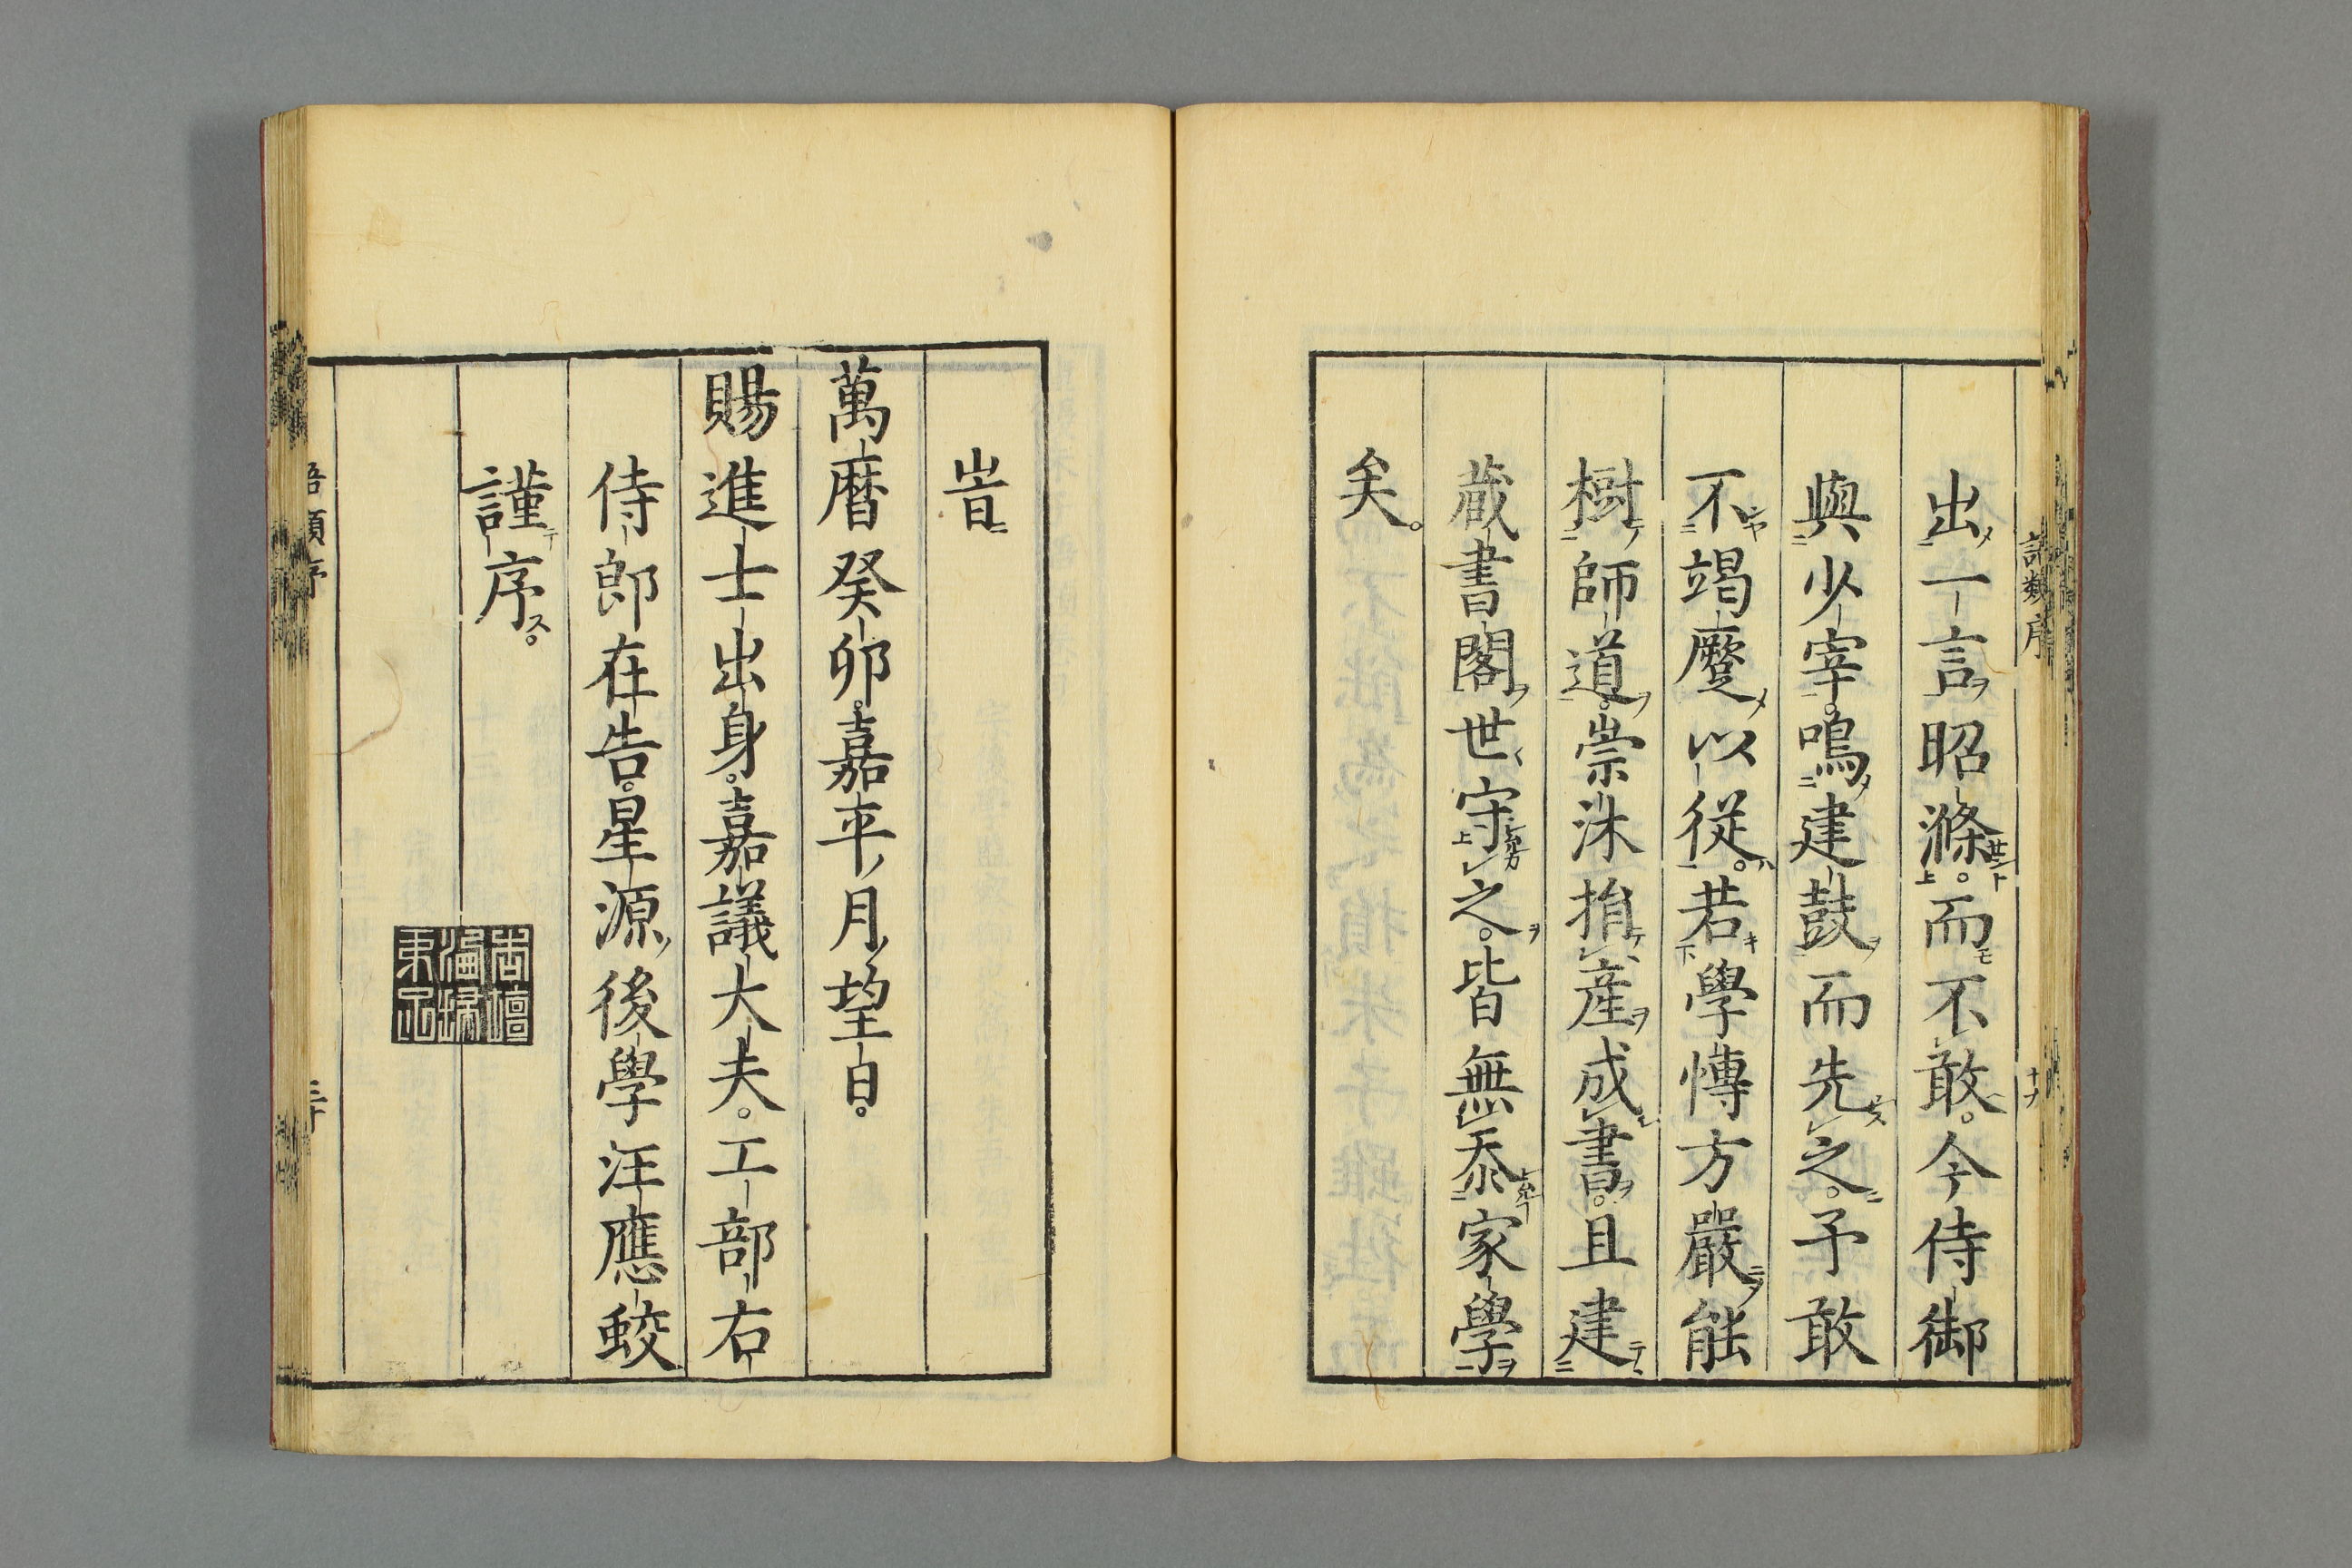 語類序
出一言昭滌。而不敢。今侍御
與少宰。鳴建鼓而先之。予敢
不竭蹷以從。若學慱方嚴能
樹師道。崇洙捐産成書。且建
蔵書閣世守之。皆無忝家學
矣。
旹
萬暦癸卯。嘉平月望日。
賜進士出身。嘉議大夫。工部右
侍郎在告。星源後學汪應蛟
謹序。
語類序